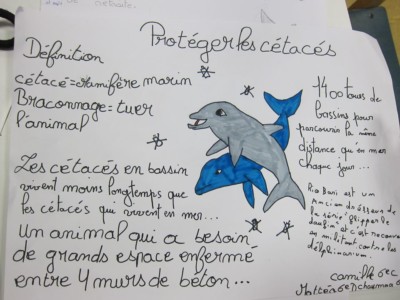 Protéger les cétacés
Définition
cétacé = mamifère marin
Braconnage = tuer
l'animal
1400 tours de
bassins pour
parcourir la même
distance qu'en mer
chaque jour...
Les cétacés en bassin
vivent moins longtemps que
les cétacés qui vivent en mer...
Un animal qui a besoin
de grands espace enfermé
entre 4 murs de béton...
est un
Ancien dresseur de
la série
dauphin et c'est reconverti
en militant contre les
delphinarium.
camille 6eC
Mattéa 6e